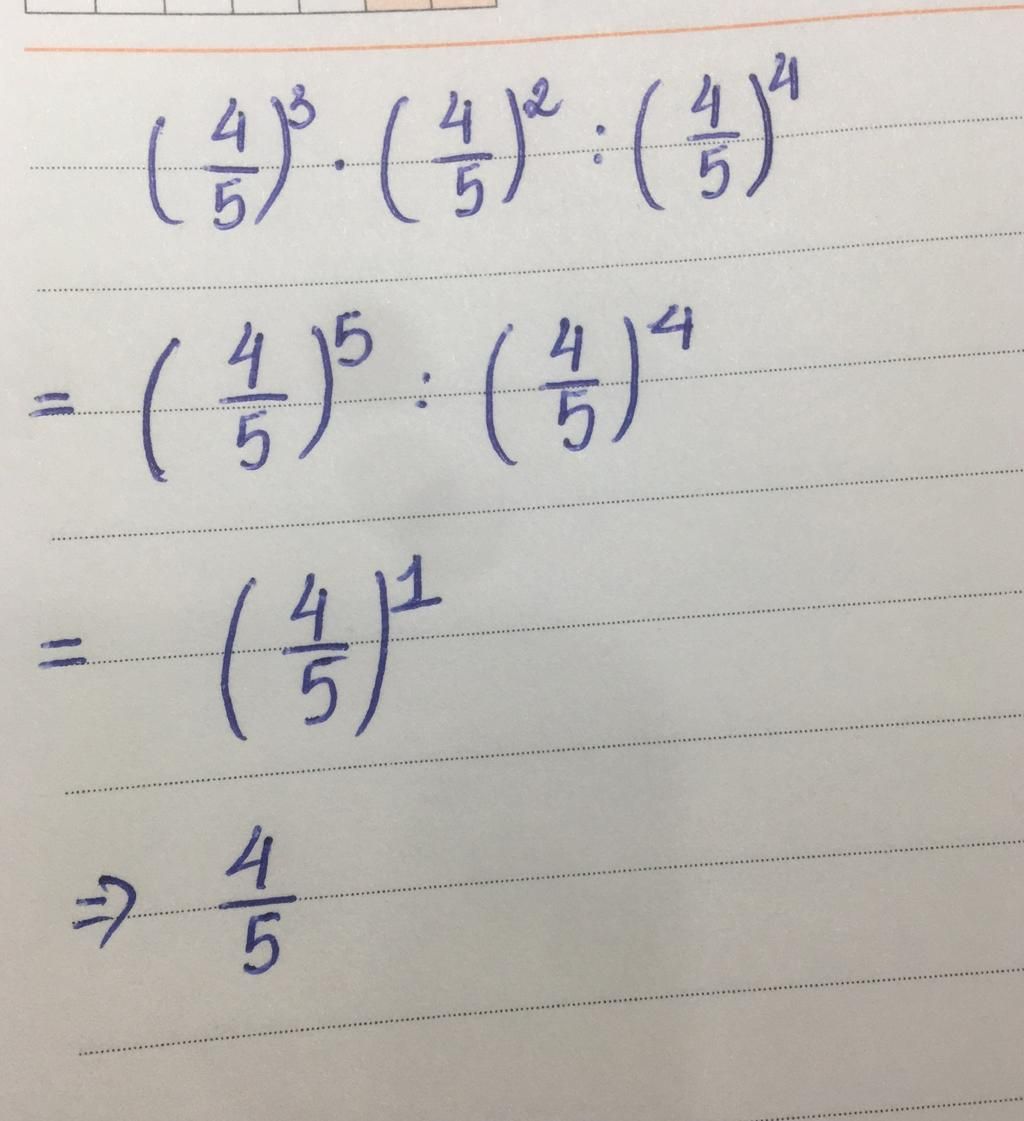 (4/5)³ · (4/5)² : (4/5)⁴
= (4/5)⁵ : (4/5)⁴
= (4/5)¹
⇒ 4/5